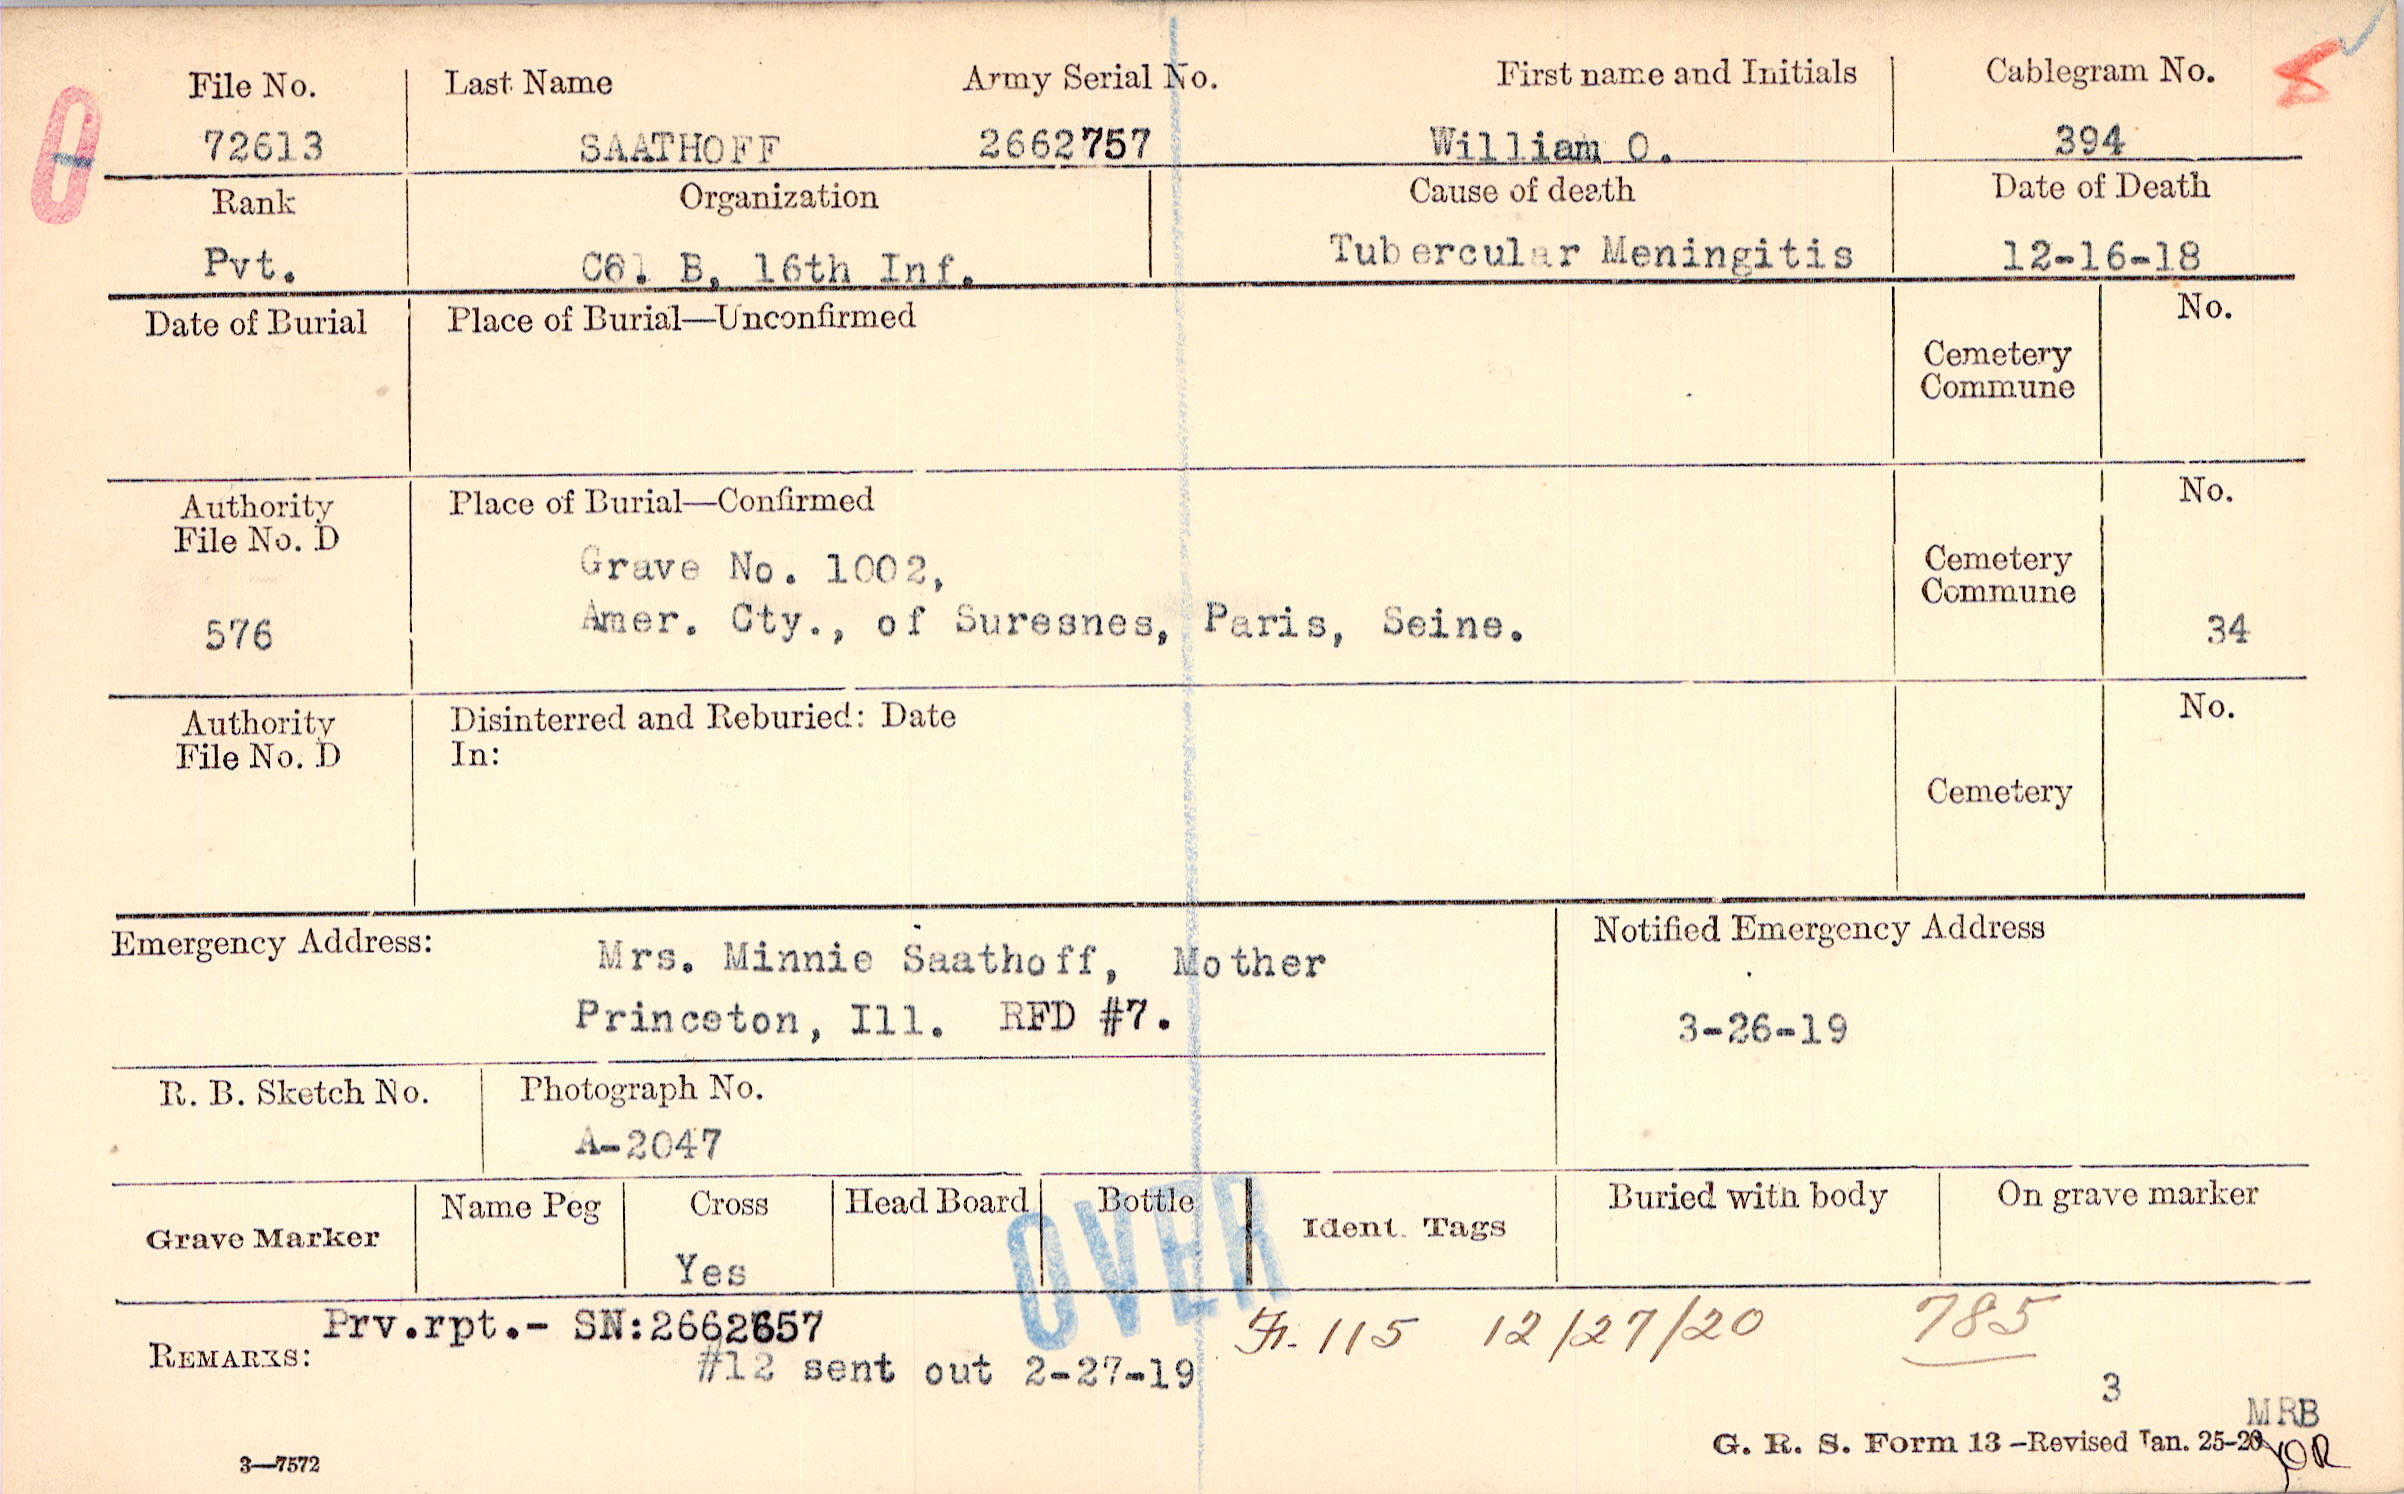 File No. Last Name Army Serial No. First name and Initials Cablegram No.
72613 SAATHOFF 2662757 William O. 394
Rank Organization Cause of death Date of Death
Pvt. Co. B, 16th Inf. Tubercular Meningitis 12-16-18
Date of Burial Place of Burial—Unconfirmed No.
Cemetery
Commune
Authority Place of Burial—Confirmed No.
File No. D
Grave No. 1002, Cemetery
Commune
576 Amer. Cty., of Suresnes, Paris, Seine. 34
Authority Disinterred and Reburied: Date No.
File No. D In:
Cemetery
Emergency Address: Mrs. Minnie Saathoff, Mother Notified Emergency Address
Princeton, Ill. RFD #7. 3-26-19
R. B. Sketch No. Photograph No.
A-2047
Grave Marker Name Peg Cross Head Board Bottle Ident. Tags Buried with body On grave marker
Yes
OVER
Prv.rpt.- SN:2662657 115 12/27/20 785
REMARKS: #12 sent out 2-27-19
3
MRB
G. R. S. Form 13—Revised Jan. 25-20
3—7572